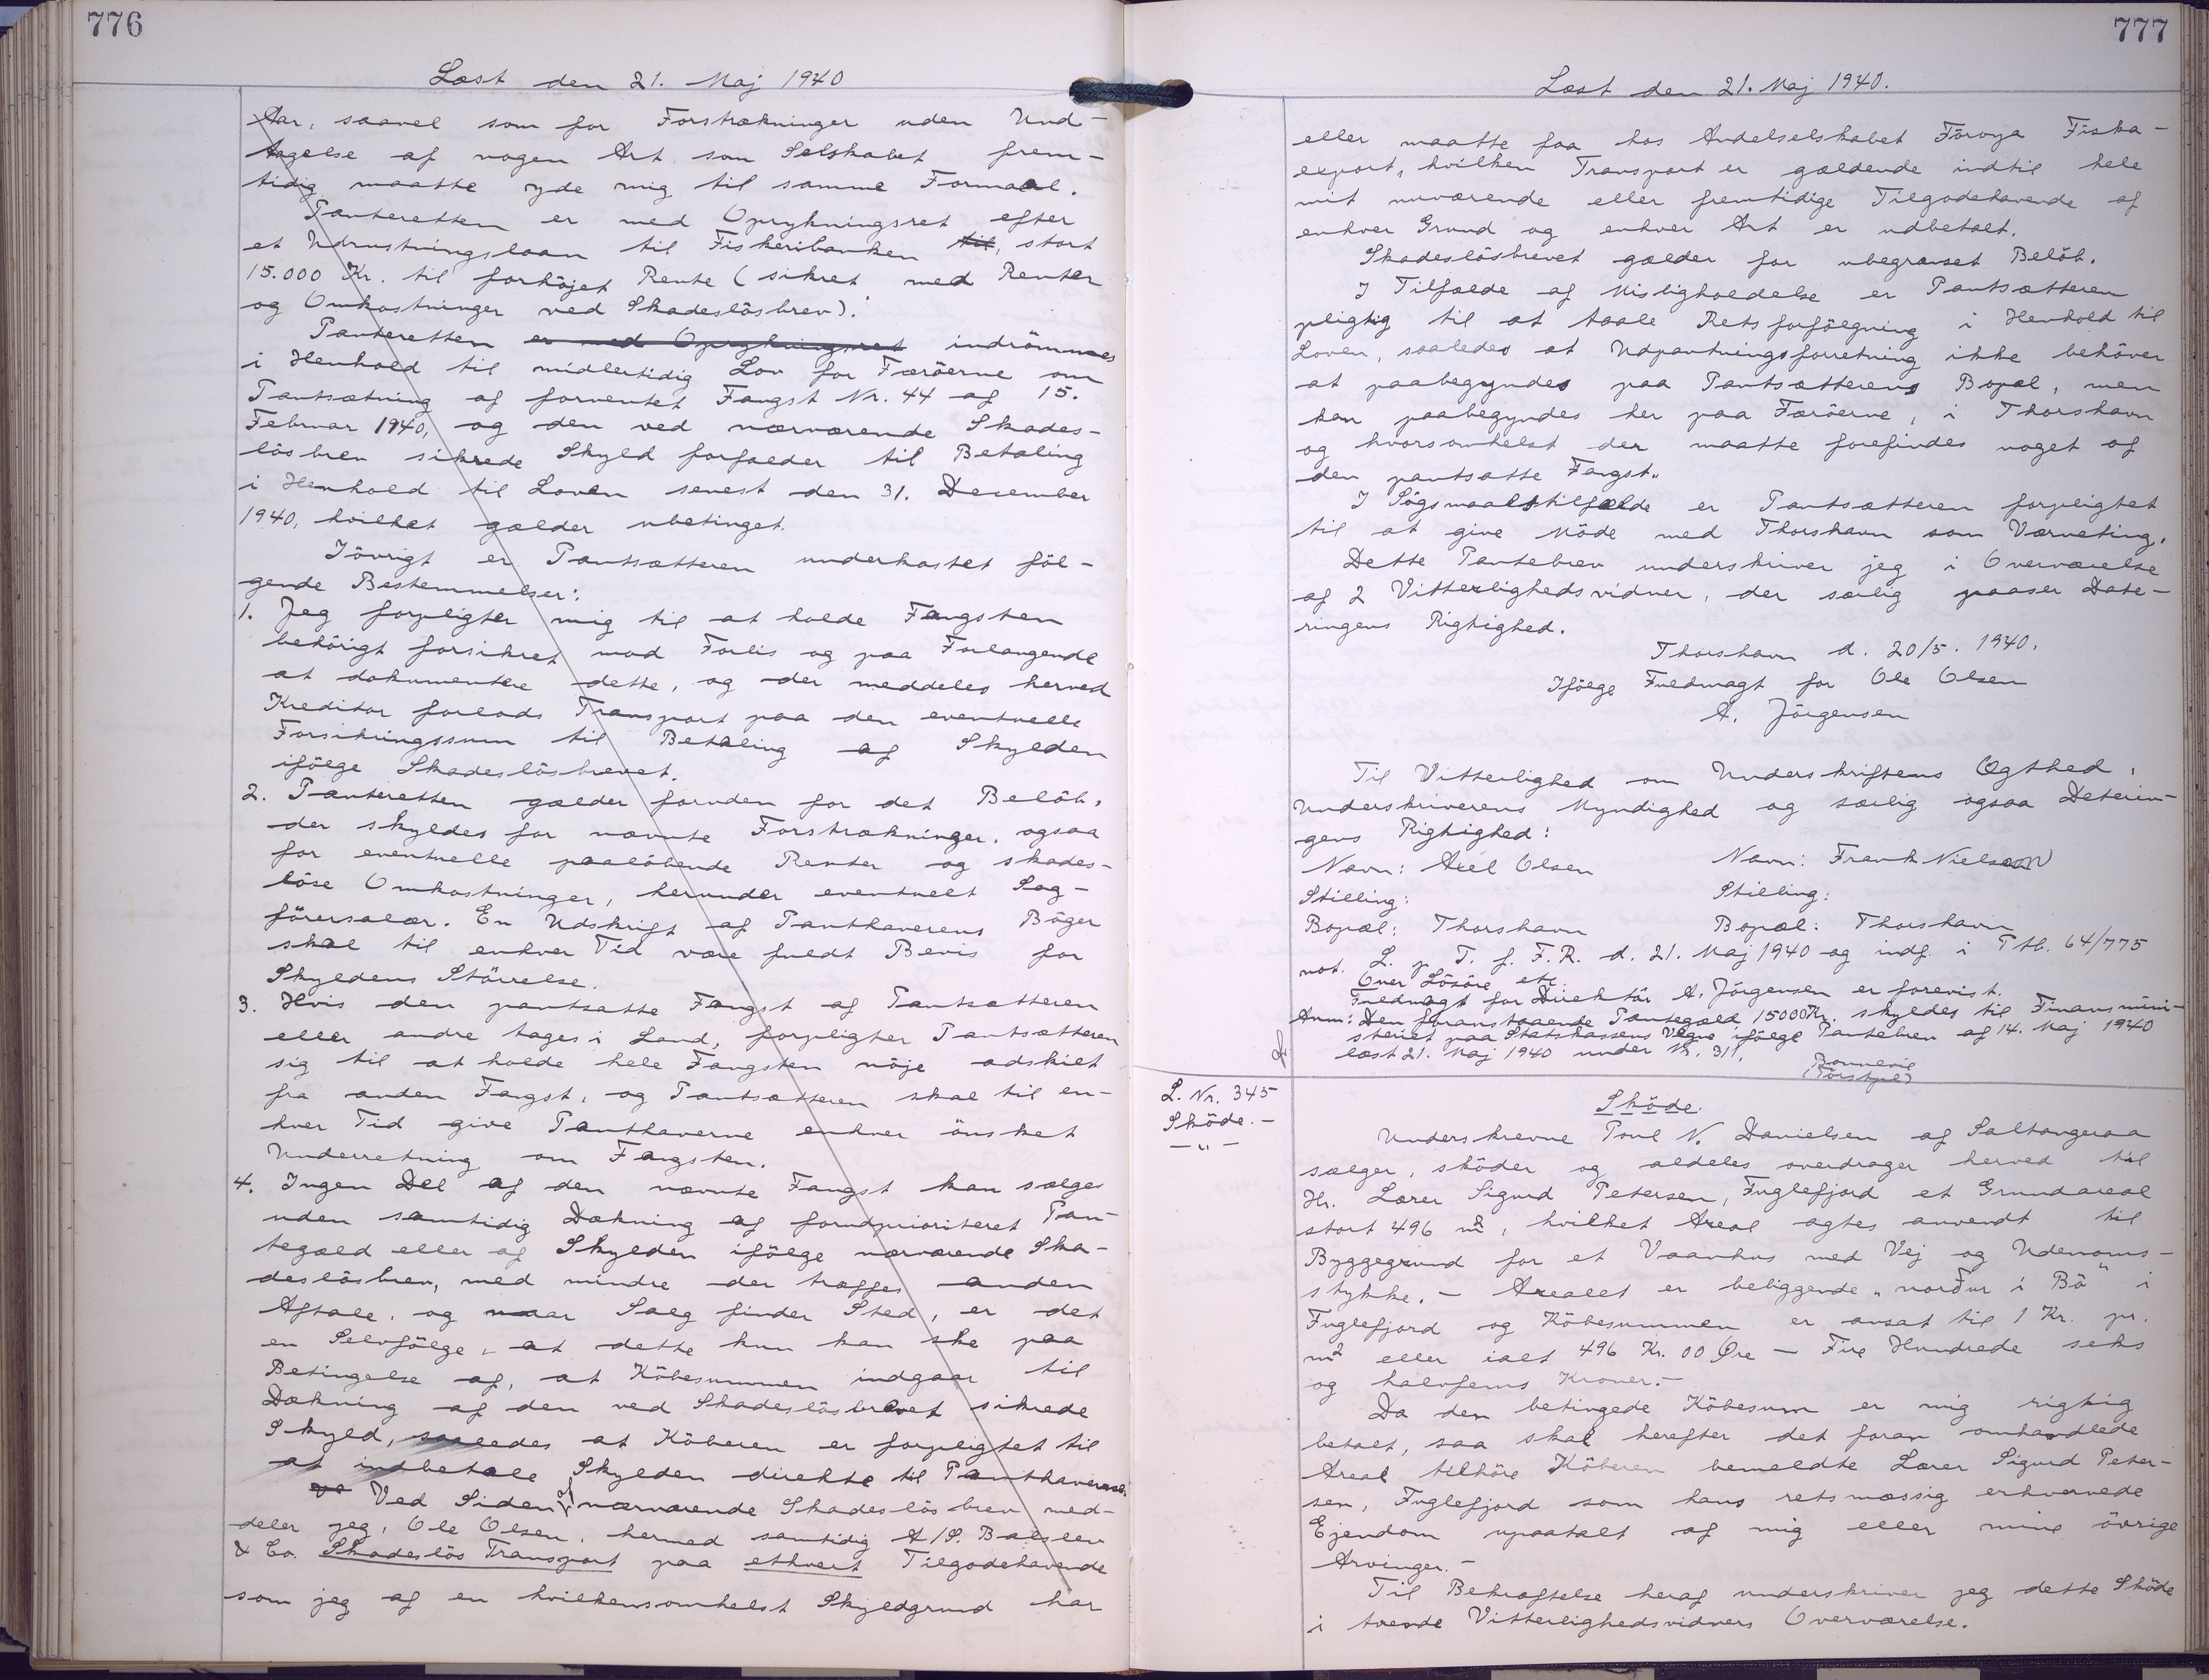 776
Læst den 21. Maj 1940
Aar, saavel som for Forstrækninger uden Und-
tagelse af nogen Art som Selskabet frem-
tidig maatte yde mig til samme Formaal.
Panteretten er med Oprykningsret efter
et Udrustningslaan til Fiskeribanken til, stort
15.000 Kr. til forhöjet Rente (sikret med Renter
og Omkostninger ved Skadeslösbrev).
Panteretten er med Oprykningsret indrömmes
i Henhold til midlertidig Lov for Færöerne om
Pantsætning af forventet Fangst Nr. 44 af 15.
Februar 1940, og den ved nærværende Skades-
lösbrev sikrede Skyld forfalder til Betaling
i Henhold til Loven senest den 31. December
1940, hvilket gælder ubetinget.
Iövrigt er Pantsætteren underkastet föl-
gende Bestemmelser:
1. Jeg forpligter mig til at holde Fangsten
behörigt forsikret mod Forlis og paa Forlangende
at dokumentere dette, og der meddeles herved
Kreditor forlods Transport paa den eventuelle
Forsikringssum til Betaling af Skylden
ifölge Skadeslösbrevet.
2. Panteretten gælder foruden for det Belöb,
der skyldes for nævnte Forstrækninger, ogsaa
for eventuelle paalöbende Renter og skades-
löse Omkostninger, herunder eventuelt Sag-
förersalær. En Udskrift af Panthaverens Böger
skal til enhver Tid være fuldt Bevis for
Skyldens Störrelse.
3. Hvis den pantsatte Fangst af Pantsætteren
eller andre tages i Land, forpligter Pantsætteren
sig til at holde hele Fangsten nöje adskilt
fra anden Fangst, og Pantsætteren skal til en-
hver Tid give Panthaverne enhver önsket
Underretning om Fangsten.
4. Ingen Del af den nævnte Fangst kan sælges
uden samtidig Dækning af forudprioriteret Pan-
tegæld eller af Skylden ifölge nærværende Ska-
deslösbrev, med mindre der træffes anden
Aftale, og naar Salg finder Sted, er det
en Selvfölge, at dette kun kan ske paa
Betingelse af, at Köbesummen indgaar til
Dækning af den ved Skadeslösbrevet sikrede
Skyld, saaledes at Köberen er forpligtet til
at indbetale Skylden direkte til Panthaveren.
Ved Siden af nærværende Skadeslösbrev med-
deler jeg, Ole Olsen, hermed samtidig A/S. Balslev
& Co. Skadeslös Transport paa ethvert Tilgodehavende
som jeg af en hvilkensomhelst Skyldgrund har
777
Læst den 21. Maj 1940.
eller maatte faa hos Andelselskabet Föroya Fiska-
export, hvilken Transport er gældende indtil hele
mit nuværende eller fremtidige Tilgodehavende af
enhver Grund og enhver Art er udbetalt.
Skadeslösbrevet gælder for ubegrænset Belöb.
I Tilfælde af Misligholdelse er Pantsætteren
pligtig til at taale Retsforfölgning i Henhold til
Loven, saaledes at Udpantningsforretning ikke behöver
at paabegyndes paa Pantsætterens Bopæl, men
kan paabegyndes her paa Færöerne, i Thorshavn
og hvorsomhelst der maatte forefindes noget af
den pantsatte Fangst.
I Sögsmaalstilfælde er Pantsætteren forpligtet
til at give Möde med Thorshavn som Værneting.
Dette Pantebrev underskriver jeg i Overværelse
af 2 Vitterlighedsvidner, der særlig paaser Date-
ringens Rigtighed.
Thorshavn d. 20/5. 1940.
Ifölge Fuldmagt for Ole Olsen
A. Jörgensen
Til Vitterlighed om Underskriftens Ægthed,
Underskriverens Myndighed og særlig ogsaa Daterin-
gens Rigtighed:
Navn: Axel Olsen Navn: Frank Nielsen
Stilling: Stilling:
Bopæl: Thorshavn Bopæl: Thorshavn
not. L. p. T. f. F. R. d. 21. Maj 1940 og indf. i Ptb. 64/775
Over Lösöre etc.
Fuldmagt for Direktör A. Jörgensen er forevist.
Anm: Den foranstaaende Pantegæld 15000 Kr. skyldes til Finansmini-
steriet paa Statskassens Vegne ifölge Pantebrev af 14. Maj 1940
læst 21. Maj 1940 under Nr. 311.
Bonnevie
L. Nr. 345
Sköde.-
-"-
Sköde.
Underskrevne Poul N. Danielsen af Saltangeraa
sælger, sköder og aldeles overdrager herved til
Hr. Lærer Sigurd Petersen, Fuglefjord et Grundareal
stort 496 m², hvilket Areal agtes anvendt til
Byggegrund for et Vaanhus med Vej og Udenoms-
stykke. - Arealet er beliggende "norður i Bö" i
Fuglefjord og Köbesummen er ansat til 1 Kr. pr.
m² eller ialt 496 Kr. 00 Øre - Fire Hundrede seks
og halvfems Kroner.-
Da den betingede Köbesum er mig rigtig
betalt, saa skal herefter det foran omhandlede
Areal tilhöre Köberen bemeldte Lærer Sigurd Peter-
sen, Fuglefjord som hans retsmæssig erhvervede
Ejendom upaatalt af mig eller mine övrige
Arvinger.-
Til Bekræftelse heraf underskriver jeg dette Sköde
i tvende Vitterlighedsvidners Overværelse.